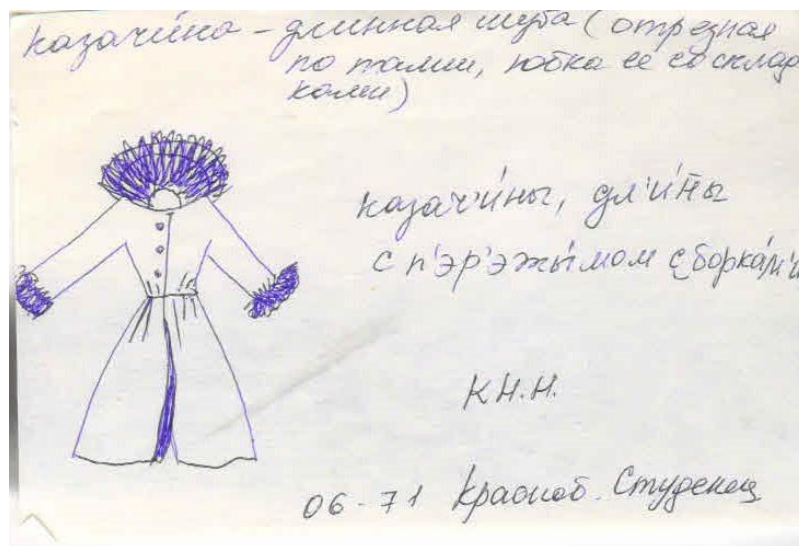 казачи́на – длинная шуба (отрезная
по талии, юбка ее со склад
ками)
казач'и́ны, дл'и́н̄ы
с п'эр'эжы́мом с борка́м'и
КН.Н.
06-71 Красноб. Студенец